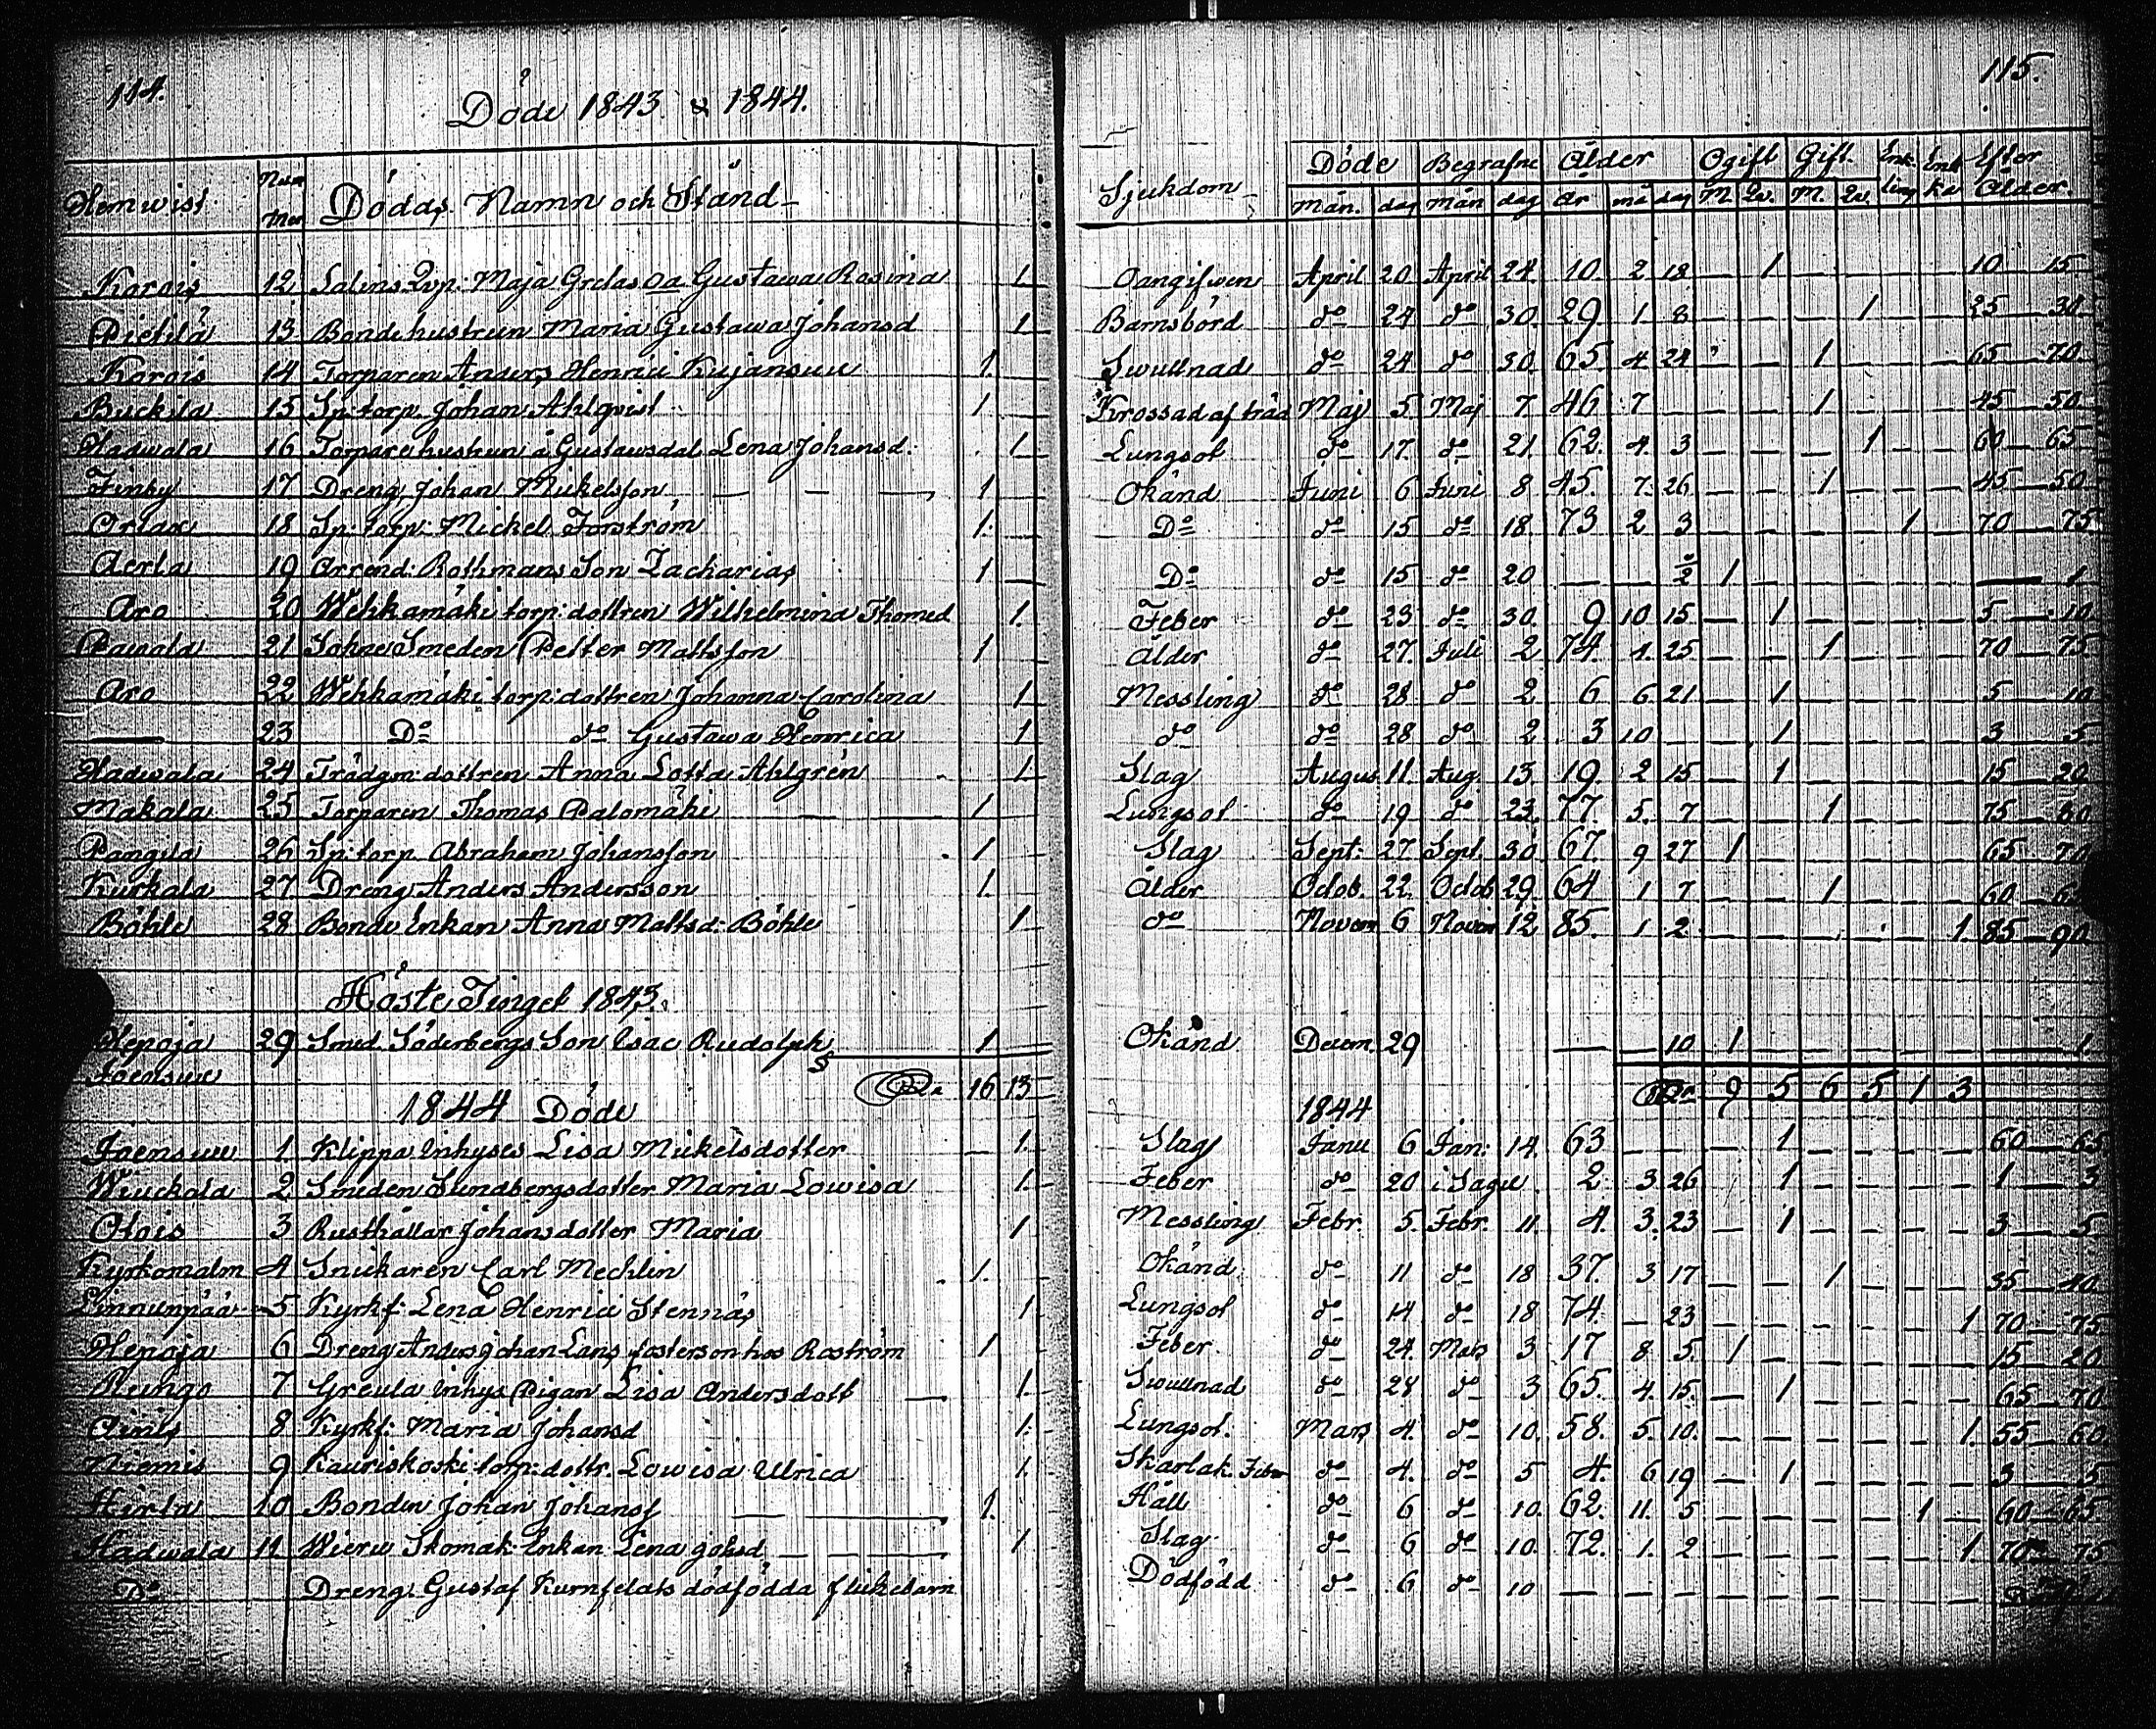 114.
Döde 1843 & 1844.
Hemwist Num mer Dödas Namn och Stånd
Karois 12 Salins Qvp. Maja Gretas oa Gustawa Rosina 1
Pietilä 13 Bonde hustrun Maria Gustawa Johansd 1
Korois 14 Torparen Anders Henric Kujansuu 1.
Buckila 15 Sp: torp. Johan Ahlqvist 1
Hadwala 16 Torpare hustrun å Gustawsdal Lena Johansd: 1
Finby 17 Dreng Johan Mickelsson 1
Orlax 18 Sp: torp: Mickel Forström 1.
Aerla 19 Arrend: Rothmans Son Zacharias 1
Aro 20 Wehkamäki torp: dottren Wilhelmina Thomed 1.
Pawola 21 Sohne Smeden Petter Mattsson 1
Aro 22 Wehkamäki torp: dottren Johanna Carolina 1.
— 23 Do do Gustawa Henrica 1
Hadwala 24 Trädgm: dottren Anna Lotta Ahlgrén 1.
Makola 25 Torparen Thomas Palomäki 1.
Pangila 26 Sp: torp. Abraham Johansson 1
Kurkala 27 Dreng Anders Andersson 1.
Böhle 28 Bonde Enkan Anna Mattsd: Böhle 1
Höste Tinget 1843.
Hepoja 29 Smed. Söderbergs Son Isac Rudolph 1
Joensuu 16 13
1844 Döde
Joensuu 1 Klippa Inhyses Lisa Mickelsdotter 1.
Wiuckola 2 Smeden Sundbergsdotter Maria Lowisa 1.
Olois 3 Rusthållar Johansdotter Maria 1
Kyrkomalm 4 Snickaren Carl Mechlin 1.
Linnunpää 5 Kyrkf: Lena Henric Stennäs 1
Hepoja 6 Dreng Anders Johan Lans fosterson hos Roström 1
Rungo 7 Greula Inhys Pigan Lisa Andersdott 1.
Ainis 8 Kyrkf: Maria Johansd 1.
Niemis 9 Kauriskoski torp: dottr. Lowisa Ulrica 1.
Hirla 10 Bonden Johan Johanss 1.
Hadwala 11 Wierw Skomak: Enkan Lena Johsd 1
Do Dreng Gustaf Kurnfelats dödfödda flickebarn
115.
Sjukdom Döde Begrafne Ålder Ogift Gift. Enk- ling Enk ka Efter Ålder.
Mån. dag Mån dag år må dag M. Qv. M. Qv.
Oangifwen April 20 April 24. 10 2 18 — 1 10 — 15
Barnsbörd do 24 do 30. 29. 1 8 1 25 — 30
Swullnad do 24 do 30. 65. 4 24 1 65 — 70
Krossad af träd Maj 5 Maj 7 46 7 1 45 — 50
Lungsot do 17. do 21. 62. 4. 3 1 60 — 65
Okänd Juni 6 Juni 8 45. 7. 26 1 45 — 50
Do do 15 do 18. 73 2 3 1 70 — 75
Do do 15 do 20 — — 1/2 1 — 1
Feber do 23 do 30. 9 10 15 1 5 — 10
Ålder do 27. Juli 2 74. 1. 25 1 70 — 75
Messling do 28 do 2 6 6. 21 1 5 — 10
do do 28 do 2 3 10 1 3 — 5
Slag Augus 11. Aug. 13. 19. 2 15 1 15 — 20
Lungsot do 19 do 23. 77. 5. 7 1 75 — 80
Slag Sept: 27 Sept. 30 67. 9 27 1 65 — 70
Ålder Octob. 22. Octob 29. 64 1 7 1 60 —
do Novem 6 Novem 12 85. 1 2 1. 85 — 90
Okänd Decem. 29 — 10 1 — 1
9 5 6 5 1 3
1844
Slag Janu 6 Jan: 14. 63 1 60 — 65
Feber do 20 i Sagu 2 3 26 1 1 — 3
Messling Febr. 5. Febr. 11. 4. 3. 23 1 3 — 5
Okänd do 11 do 18 37. 3 17 1 35 — 40
Lungsot do 14 do 18 74. — 23 1 70 — 75
Feber do 24. Mars 3 17 8 5. 1 15 — 20
Swullnad do 28 do 3 65. 4. 15. 1 65 — 70
Lungsot. Mars 4. do 10. 58. 5. 10. 1. 55 — 60
Skarlak. Feber do 4. do 5 4. 6 19 1 3 — 5
Håll do 6 do 10. 62. 11. 5 1 60 — 65
Slag do 6 do 10. 72. 1. 2 1 70 — 75
Dödfödd do 6 do 10 —